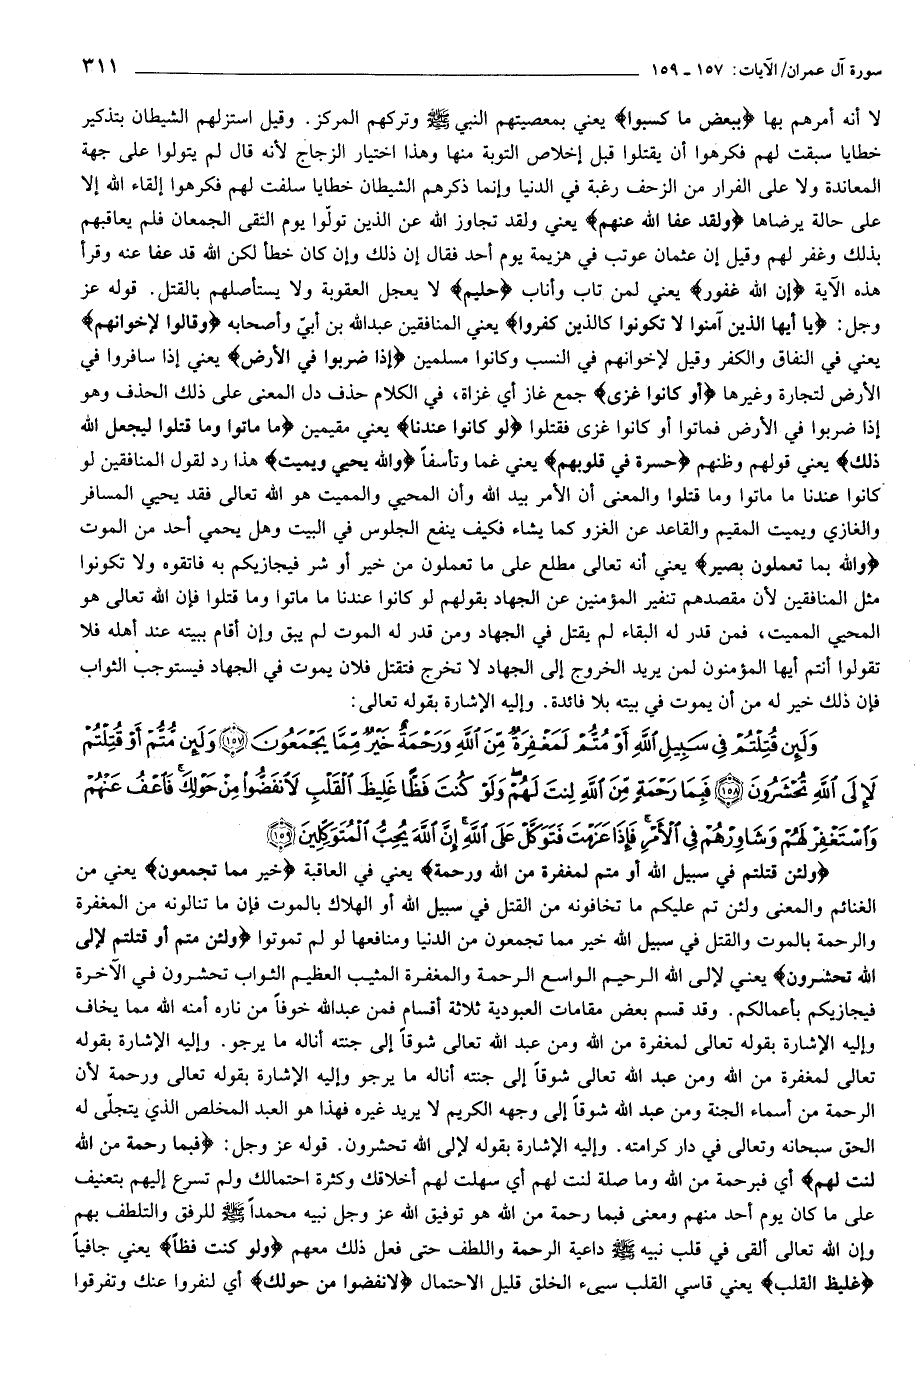 سورة آل عمران/ الآيات: ١٥٧ ـ ١٥٩ ٣١١
لا أنه أمرهم بها ﴿ببعض ما كسبوا﴾ يعني بمعصيتهم النبي ﷺ وتركهم المركز. وقيل استزلهم الشيطان بتذكير
خطايا سبقت لهم فكرهوا أن يقتلوا قبل إخلاص التوبة منها وهذا اختيار الزجاج لأنه قال لم يتولوا على جهة
المعاندة ولا على الفرار من الزحف رغبة في الدنيا وإنما ذكرهم الشيطان خطايا سلفت لهم فكرهوا إلقاء الله إلا
على حالة يرضاها ﴿ولقد عفا الله عنهم﴾ يعني ولقد تجاوز الله عن الذين تولّوا يوم التقى الجمعان فلم يعاقبهم
بذلك وغفر لهم وقيل إن عثمان عوتب في هزيمة يوم أحد فقال إن ذلك وإن كان خطأ لكن الله قد عفا عنه وقرأ
هذه الآية ﴿إن الله غفور﴾ يعني لمن تاب وأناب ﴿حليم﴾ لا يعجل العقوبة ولا يستأصلهم بالقتل. قوله عز
وجل: ﴿يا أيها الذين آمنوا لا تكونوا كالذين كفروا﴾ يعني المنافقين عبدالله بن أبيّ وأصحابه ﴿وقالوا لإخوانهم﴾
يعني في النفاق والكفر وقيل لإخوانهم في النسب وكانوا مسلمين ﴿إذا ضربوا في الأرض﴾ يعني إذا سافروا في
الأرض لتجارة وغيرها ﴿أو كانوا غزى﴾ جمع غاز أي غزاة، في الكلام حذف دل المعنى على ذلك الحذف وهو
إذا ضربوا في الأرض فماتوا أو كانوا غزى فقتلوا ﴿لو كانوا عندنا﴾ يعني مقيمين ﴿ما ماتوا وما قتلوا ليجعل الله
ذلك﴾ يعني قولهم وظنهم ﴿حسرة في قلوبهم﴾ يعني غما وتأسفاً ﴿والله يحيي ويميت﴾ هذا رد لقول المنافقين لو
كانوا عندنا ما ماتوا وما قتلوا والمعنى أن الأمر بيد الله وأن المحيي والمميت هو الله تعالى فقد يحيي المسافر
والغازي ويميت المقيم والقاعد عن الغزو كما يشاء فكيف ينفع الجلوس في البيت وهل يحمي أحد من الموت
﴿والله بما تعملون بصير﴾ يعني أنه تعالى مطلع على ما تعملون من خير أو شر فيجازيكم به فاتقوه ولا تكونوا
مثل المنافقين لأن مقصدهم تنفير المؤمنين عن الجهاد بقولهم لو كانوا عندنا ما ماتوا وما قتلوا فإن الله تعالى هو
المحيي المميت، فمن قدر له البقاء لم يقتل في الجهاد ومن قدر له الموت لم يبق وإن أقام ببيته عند أهله فلا
تقولوا أنتم أيها المؤمنون لمن يريد الخروج إلى الجهاد لا تخرج فتقتل فلان يموت في الجهاد فيستوجب الثواب
فإن ذلك خير له من أن يموت في بيته بلا فائدة. وإليه الإشارة بقوله تعالى:
وَلَئِن قُتِلْتُمْ فِي سَبِيلِ اللَّهِ أَوْ مُتُّمْ لَمَغْفِرَةٌ مِّنَ اللَّهِ وَرَحْمَةٌ خَيْرٌ مِّمَّا يَجْمَعُونَ ﴿١٥٧﴾ وَلَئِن مُّتُّمْ أَوْ قُتِلْتُمْ
لَإِلَى اللَّهِ تُحْشَرُونَ ﴿١٥٨﴾ فَبِمَا رَحْمَةٍ مِّنَ اللَّهِ لِنتَ لَهُمْ ۖ وَلَوْ كُنتَ فَظًّا غَلِيظَ الْقَلْبِ لَانفَضُّوا مِنْ حَوْلِكَ ۖ فَاعْفُ عَنْهُمْ
وَاسْتَغْفِرْ لَهُمْ وَشَاوِرْهُمْ فِي الْأَمْرِ ۖ فَإِذَا عَزَمْتَ فَتَوَكَّلْ عَلَى اللَّهِ ۚ إِنَّ اللَّهَ يُحِبُّ الْمُتَوَكِّلِينَ ﴿١٥٩﴾
﴿ولئن قتلتم في سبيل الله أو متم لمغفرة من الله ورحمة﴾ يعني في العاقبة ﴿خير مما تجمعون﴾ يعني من
الغنائم والمعنى ولئن تم عليكم ما تخافونه من القتل في سبيل الله أو الهلاك بالموت فإن ما تنالونه من المغفرة
والرحمة بالموت والقتل في سبيل الله خير مما تجمعون من الدنيا ومنافعها لو لم تموتوا ﴿ولئن متم أو قتلتم لإلى
الله تحشرون﴾ يعني لإلى الله الرحيم الواسع الرحمة والمغفرة المثيب العظيم الثواب تحشرون في الآخرة
فيجازيكم بأعمالكم. وقد قسم بعض مقامات العبودية ثلاثة أقسام فمن عبدالله خوفاً من ناره أمنه الله مما يخاف
وإليه الإشارة بقوله تعالى لمغفرة من الله ومن عبد الله تعالى شوقاً إلى جنته أناله ما يرجو. وإليه الإشارة بقوله
تعالى لمغفرة من الله ومن عبد الله تعالى شوقاً إلى جنته أناله ما يرجو وإليه الإشارة بقوله تعالى ورحمة لأن
الرحمة من أسماء الجنة ومن عبد الله شوقاً إلى وجهه الكريم لا يريد غيره فهذا هو العبد المخلص الذي يتجلّى له
الحق سبحانه وتعالى في دار كرامته. وإليه الإشارة بقوله لإلى الله تحشرون. قوله عز وجل: ﴿فبما رحمة من الله
لنت لهم﴾ أي فبرحمة من الله وما صلة لنت لهم أي سهلت لهم أخلاقك وكثرة احتمالك ولم تسرع إليهم بتعنيف
على ما كان يوم أحد منهم ومعنى فبما رحمة من الله هو توفيق الله عز وجل نبيه محمداً ﷺ للرفق والتلطف بهم
وإن الله تعالى ألقى في قلب نبيه ﷺ داعية الرحمة واللطف حتى فعل ذلك معهم ﴿ولو كنت فظاً﴾ يعني جافياً
﴿غليظ القلب﴾ يعني قاسي القلب سيىء الخلق قليل الاحتمال ﴿لانفضوا من حولك﴾ أي لنفروا عنك وتفرقوا